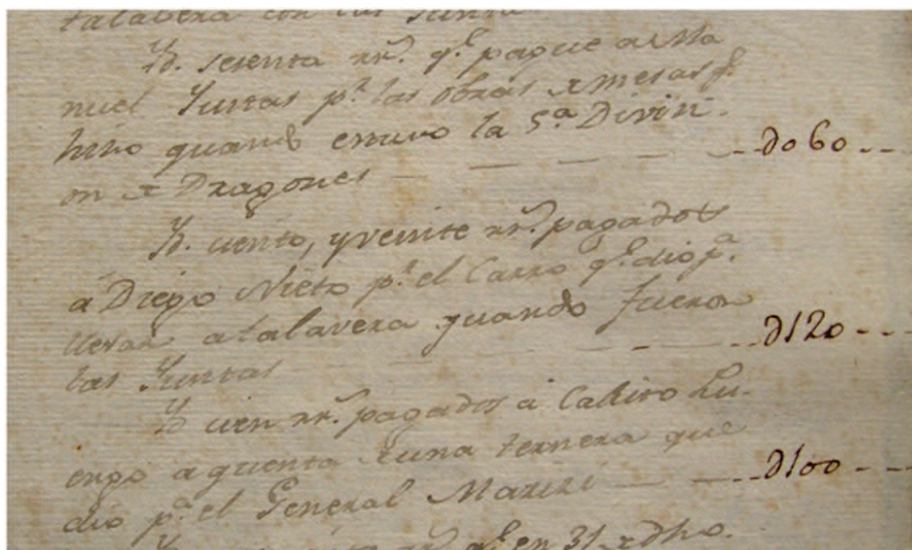 talavera con las Juntas
Yd. sesenta rr.s q.e pague a Ma
nuel Juntas p.r las obras x mesas q.e
hizo quando estuvo la 5.a Divisi-
on x Dragones — — — — do60
Yd. ciento, y veinte rr.s pagados
a Diego Nieto p.r el Carro q.e dio p.a
llevar a talavera quando fueron
las Juntas — — — d120
Yd. cien rr.s pagados a Calisto Lu-
engo a quenta x una ternera que
dio p.a el General — — d100
rr.s q.e en 31 x dho.